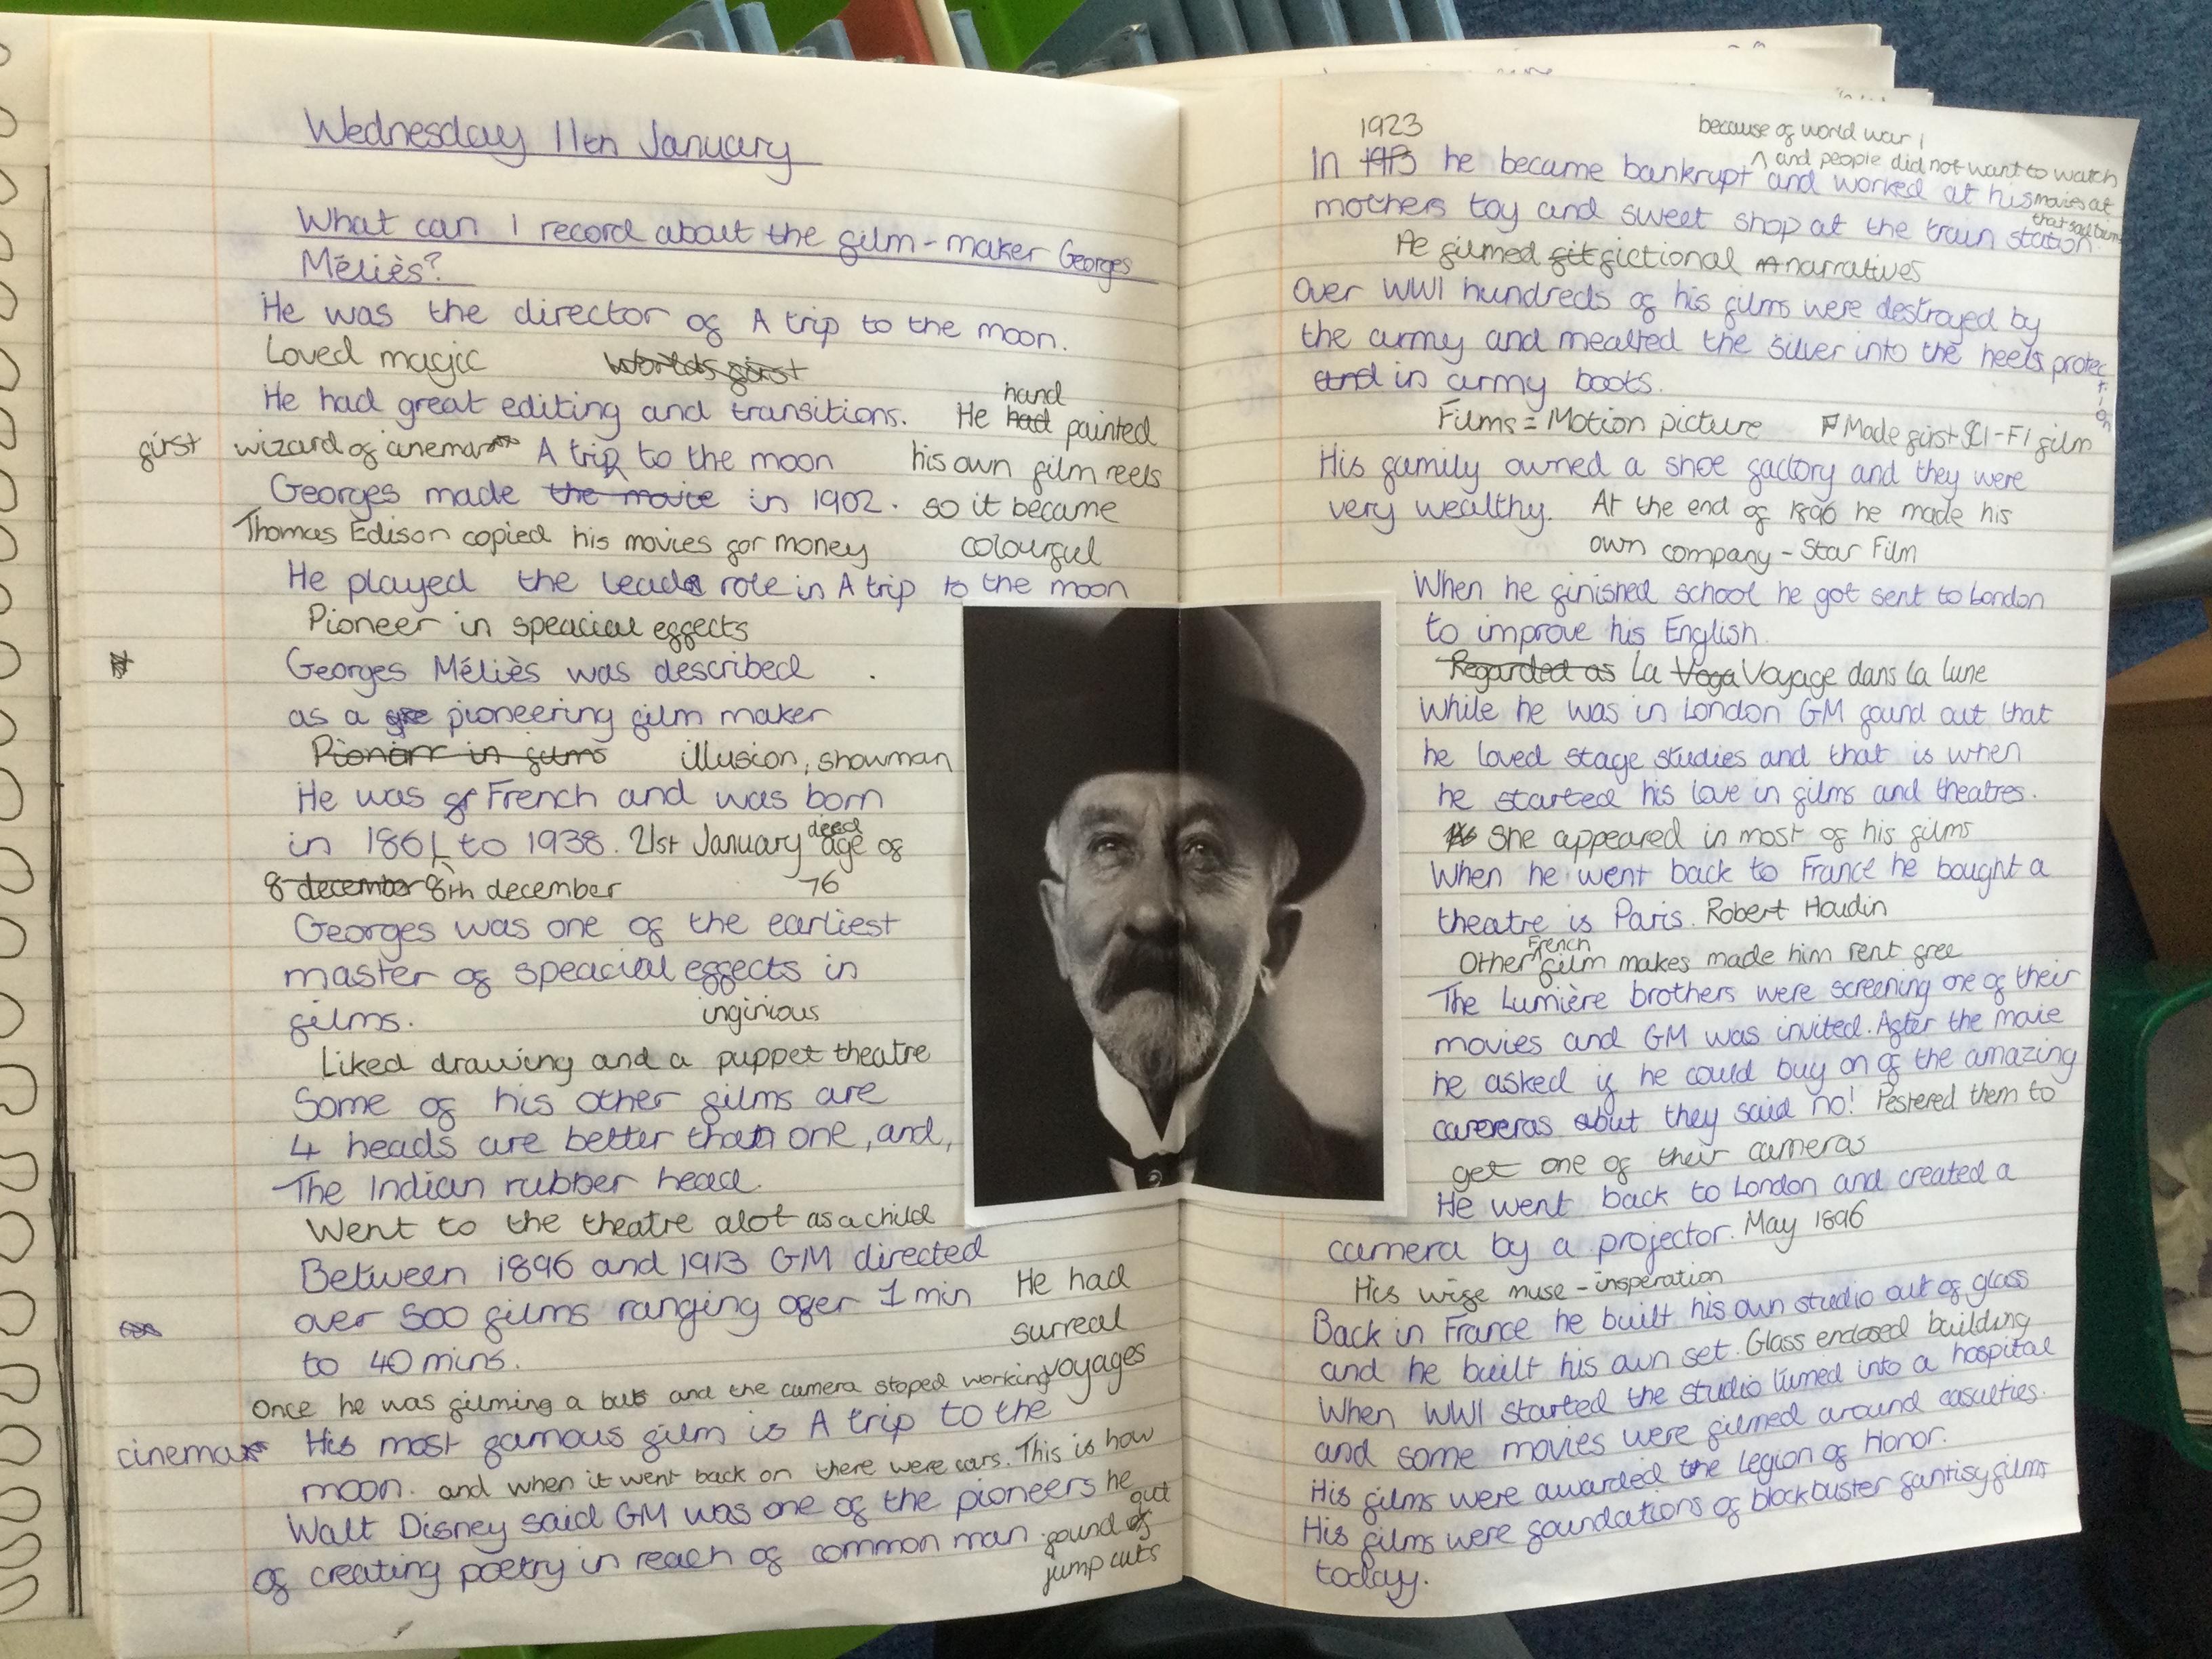 Wednesday 11th January
What can I record about the film-maker Georges
Méliès?
He was the director of A trip to the moon.
Loved magic Worlds first
He had great editing and transitions. He had hand painted
first wizard of cinema A trip to the moon his own film reels
Georges made the movie in 1902. so it became
Thomas Edison copied his movies for money colourful
He played the lead role in A trip to the moon
Pioneer in speacial effects
Georges Méliès was described
as a pioneering film maker
Pionirr in films illusion, showman
He was French and was born
in 1861 to 1938. 21st January deed age of
8 december 8th december 76
Georges was one of the earliest
master of speacial effects in
films. inginious
Liked drawing and a puppet theatre
Some of his other films are
4 heads are better than one, and,
The Indian rubber head.
Went to the theatre alot as a child
Between 1896 and 1913 GM directed
over 500 films ranging ofer 1 min He had
to 40 mins. surreal
voyages
Once he was filming a bus and the camera stoped working
cinema His most famous film is A trip to the
moon. and when it went back on there were cars. This is how
Walt Disney said GM was one of the pioneers he
of creating poetry in reach of common man found of out
jump cuts
1923 because of world war 1
In 1913 he became bankrupt ^ and people did not want to watch
and worked at his movies at
mothers toy and sweet shop at the train station that sad time
He filmed fit fictional narratives
Over WW1 hundreds of his films were destroyed by
the army and mealted the silver into the heels protection
and in army boots.
Films = Motion picture Made first SCI-FI film
His family owned a shoe factory and they were
very wealthy. At the end of 1896 he made his
own company - Star Film
When he finished school he got sent to London
to improve his English.
Regarded as La Voga Voyage dans la Lune
While he was in London GM found out that
he loved stage studies and that is when
he started his love in films and theatres.
She appeared in most of his films
When he went back to France he bought a
theatre is Paris. Robert Houdin
Other French film makes made him rent free
The Lumière brothers were screening one of their
movies and GM was invited. After the movie
he asked if he could buy on of the amazing
careras but they said no! Pestered them to
get one of their cameras
He went back to London and created a
camera by a projector. May 1896
His wife muse - insperation
Back in France he built his own studio out of glass
and he built his own set. Glass enclosed building
When WW1 started the studio turned into a hospital
and some movies were filmed around casulties.
His films were awarded the legion of Honor.
His films were foundations of blockbuster fantisy films
today.